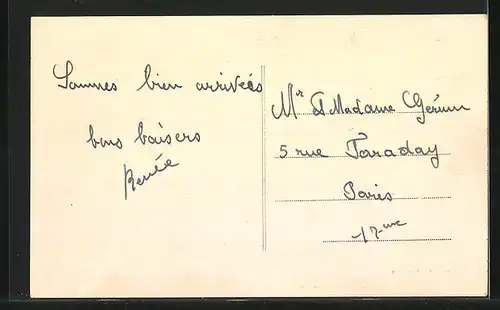 Sommes bien arrivées
bons baisers
Renée
Mr et Madame
5 rue Faraday
Paris
17me